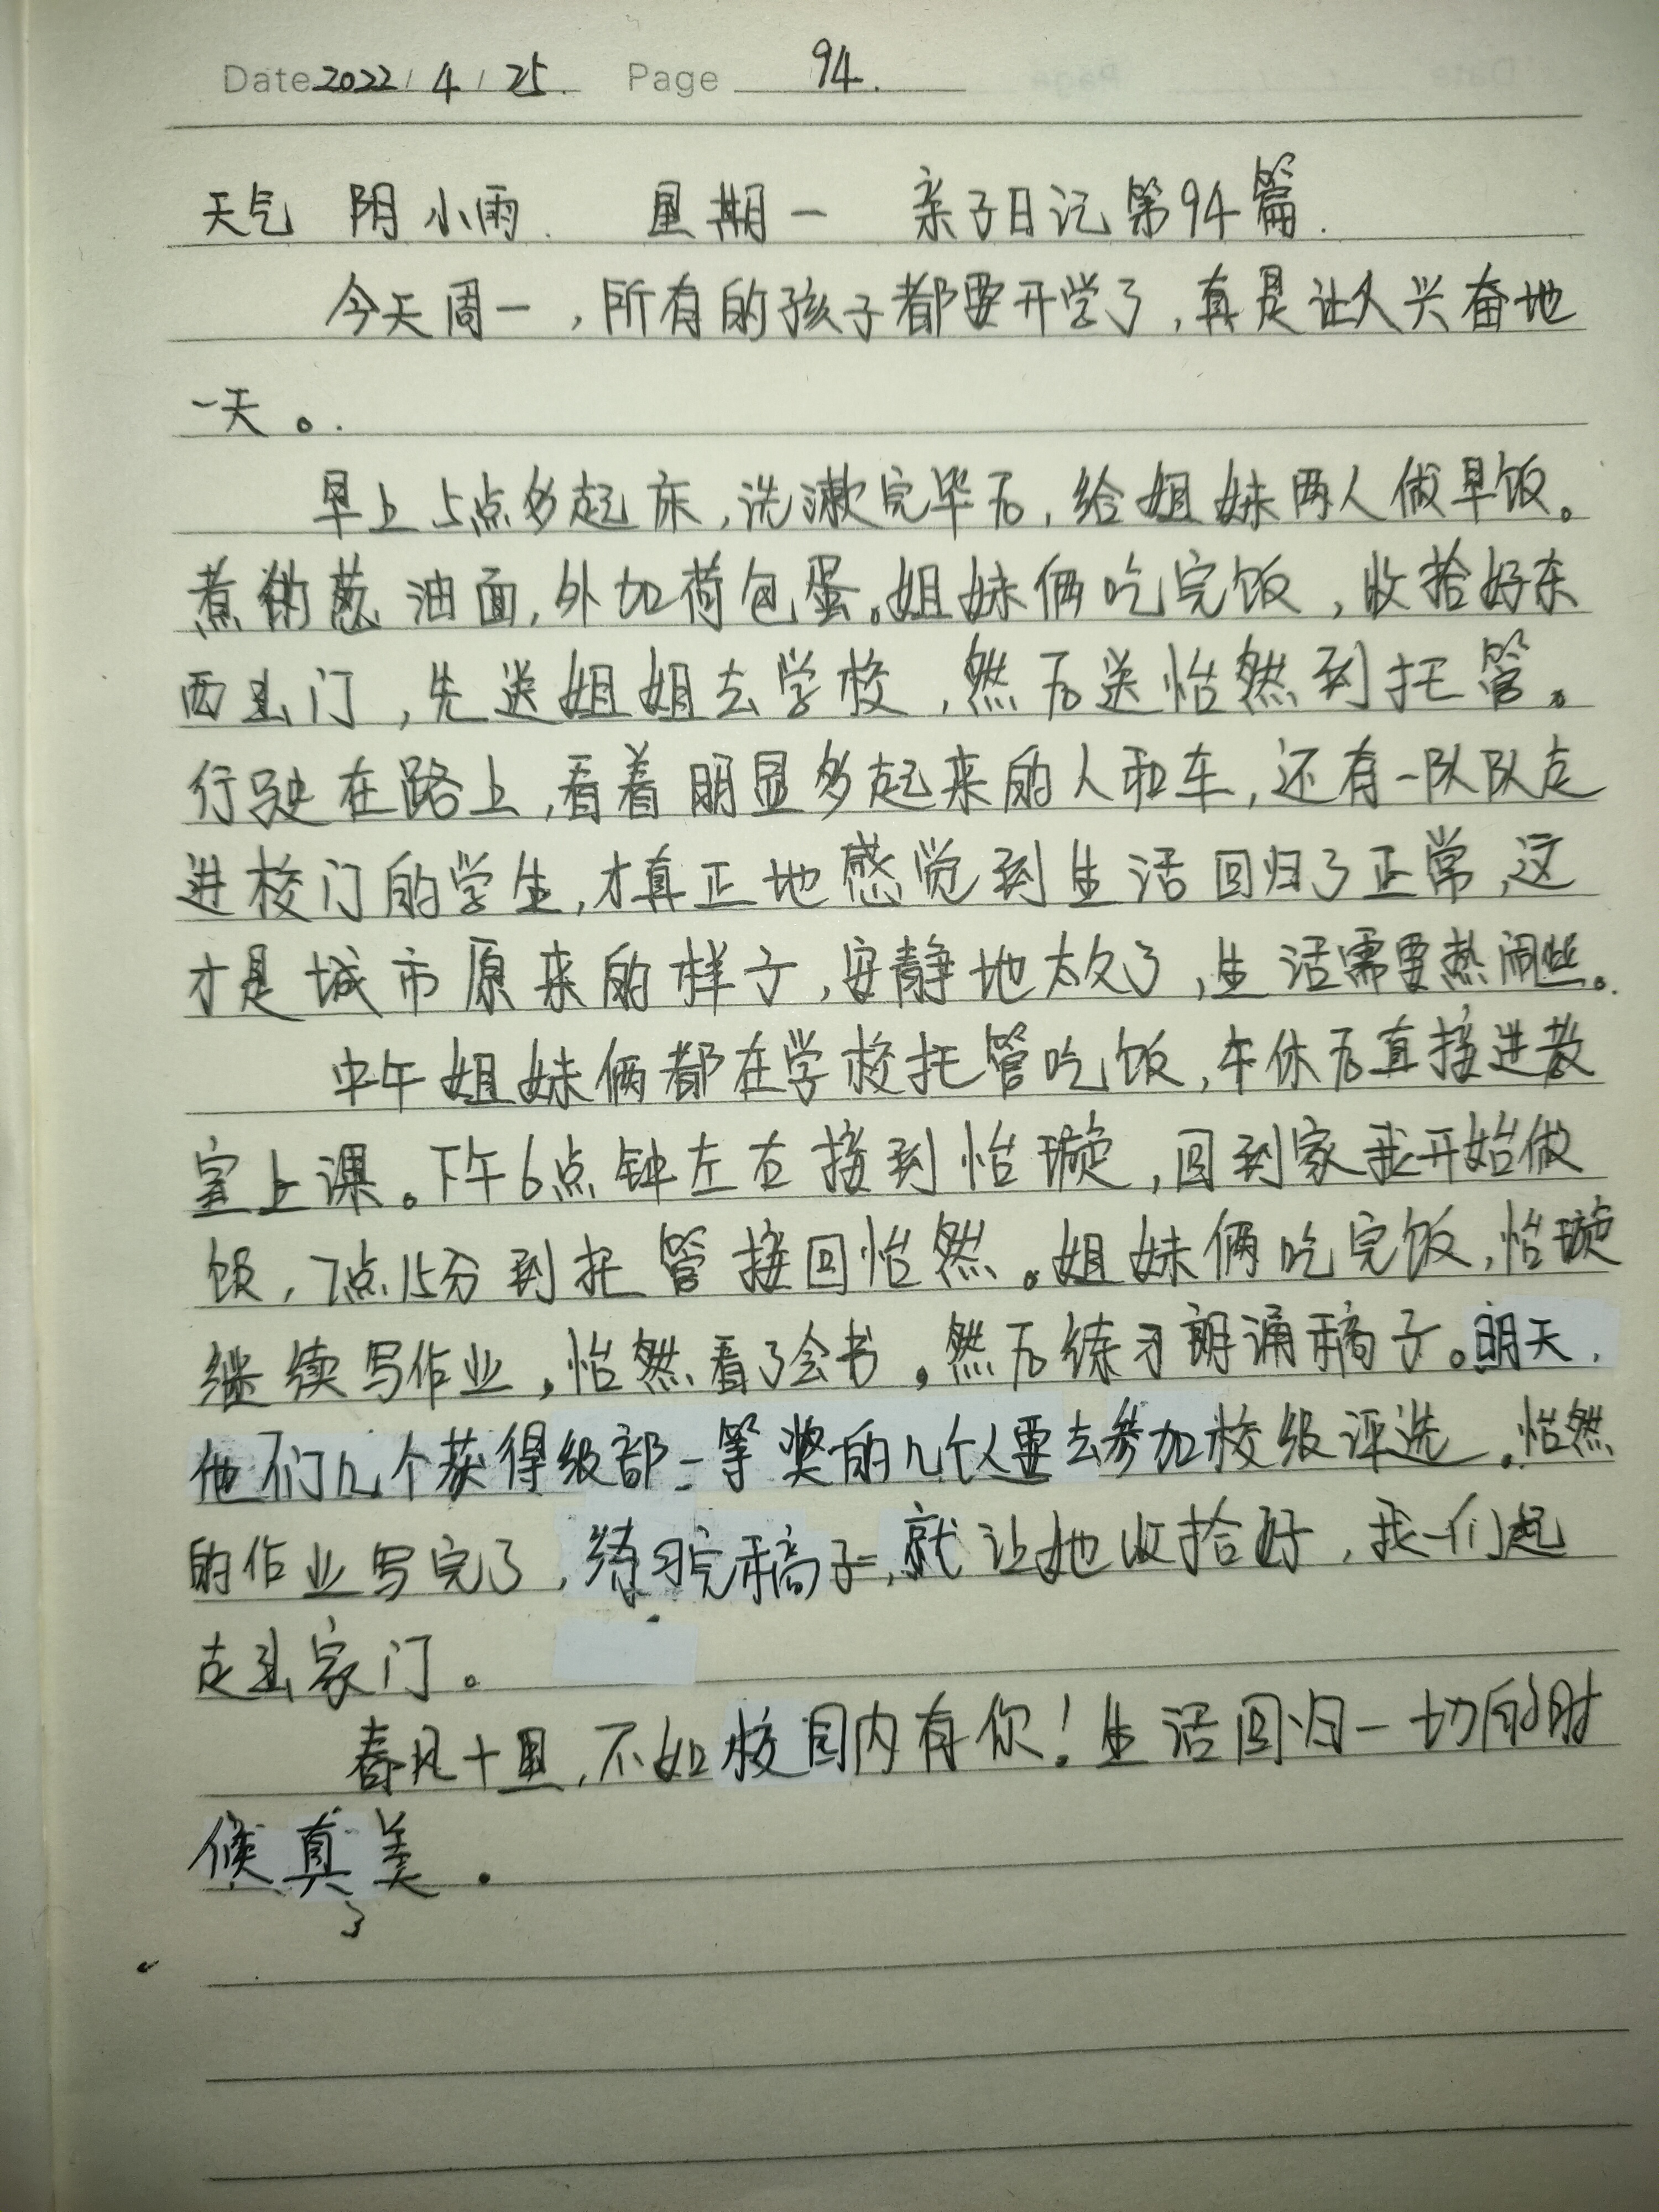 Date 2022/4/25. Page 94.
天气 阴 小雨. 星期一 亲子日记第94篇.
今天周一，所有的孩子都要开学了，真是让人兴奋地
一天。.
早上5点多起床，洗漱完毕后，给姐妹两人做早饭。
煮的葱油面，外加荷包蛋。姐妹俩吃完饭，收拾好东
西出门，先送姐姐去学校，然后送怡然到托管。
行驶在路上，看着明显多起来的人和车，还有一队队走
进校门的学生，才真正地感觉到生活回归了正常，这
才是城市原来的样子，安静地太久了，生活需要热闹些。
中午姐妹俩都在学校托管吃饭，午休后直接进教
室上课。下午6点钟左右接到怡璇，回到家我开始做
饭，7点15分到托管接回怡然。姐妹俩吃完饭，怡璇
继续写作业，怡然看了会书，然后练习朗诵稿子。明天，
他们几个获得级部一等奖的几个人要去参加校级评选。怡然
的作业写完了，练习完稿子，就让她收拾好，我们一起
走出家门。
春风十里，不如校园内有你！生活回归一切的时
候真美.